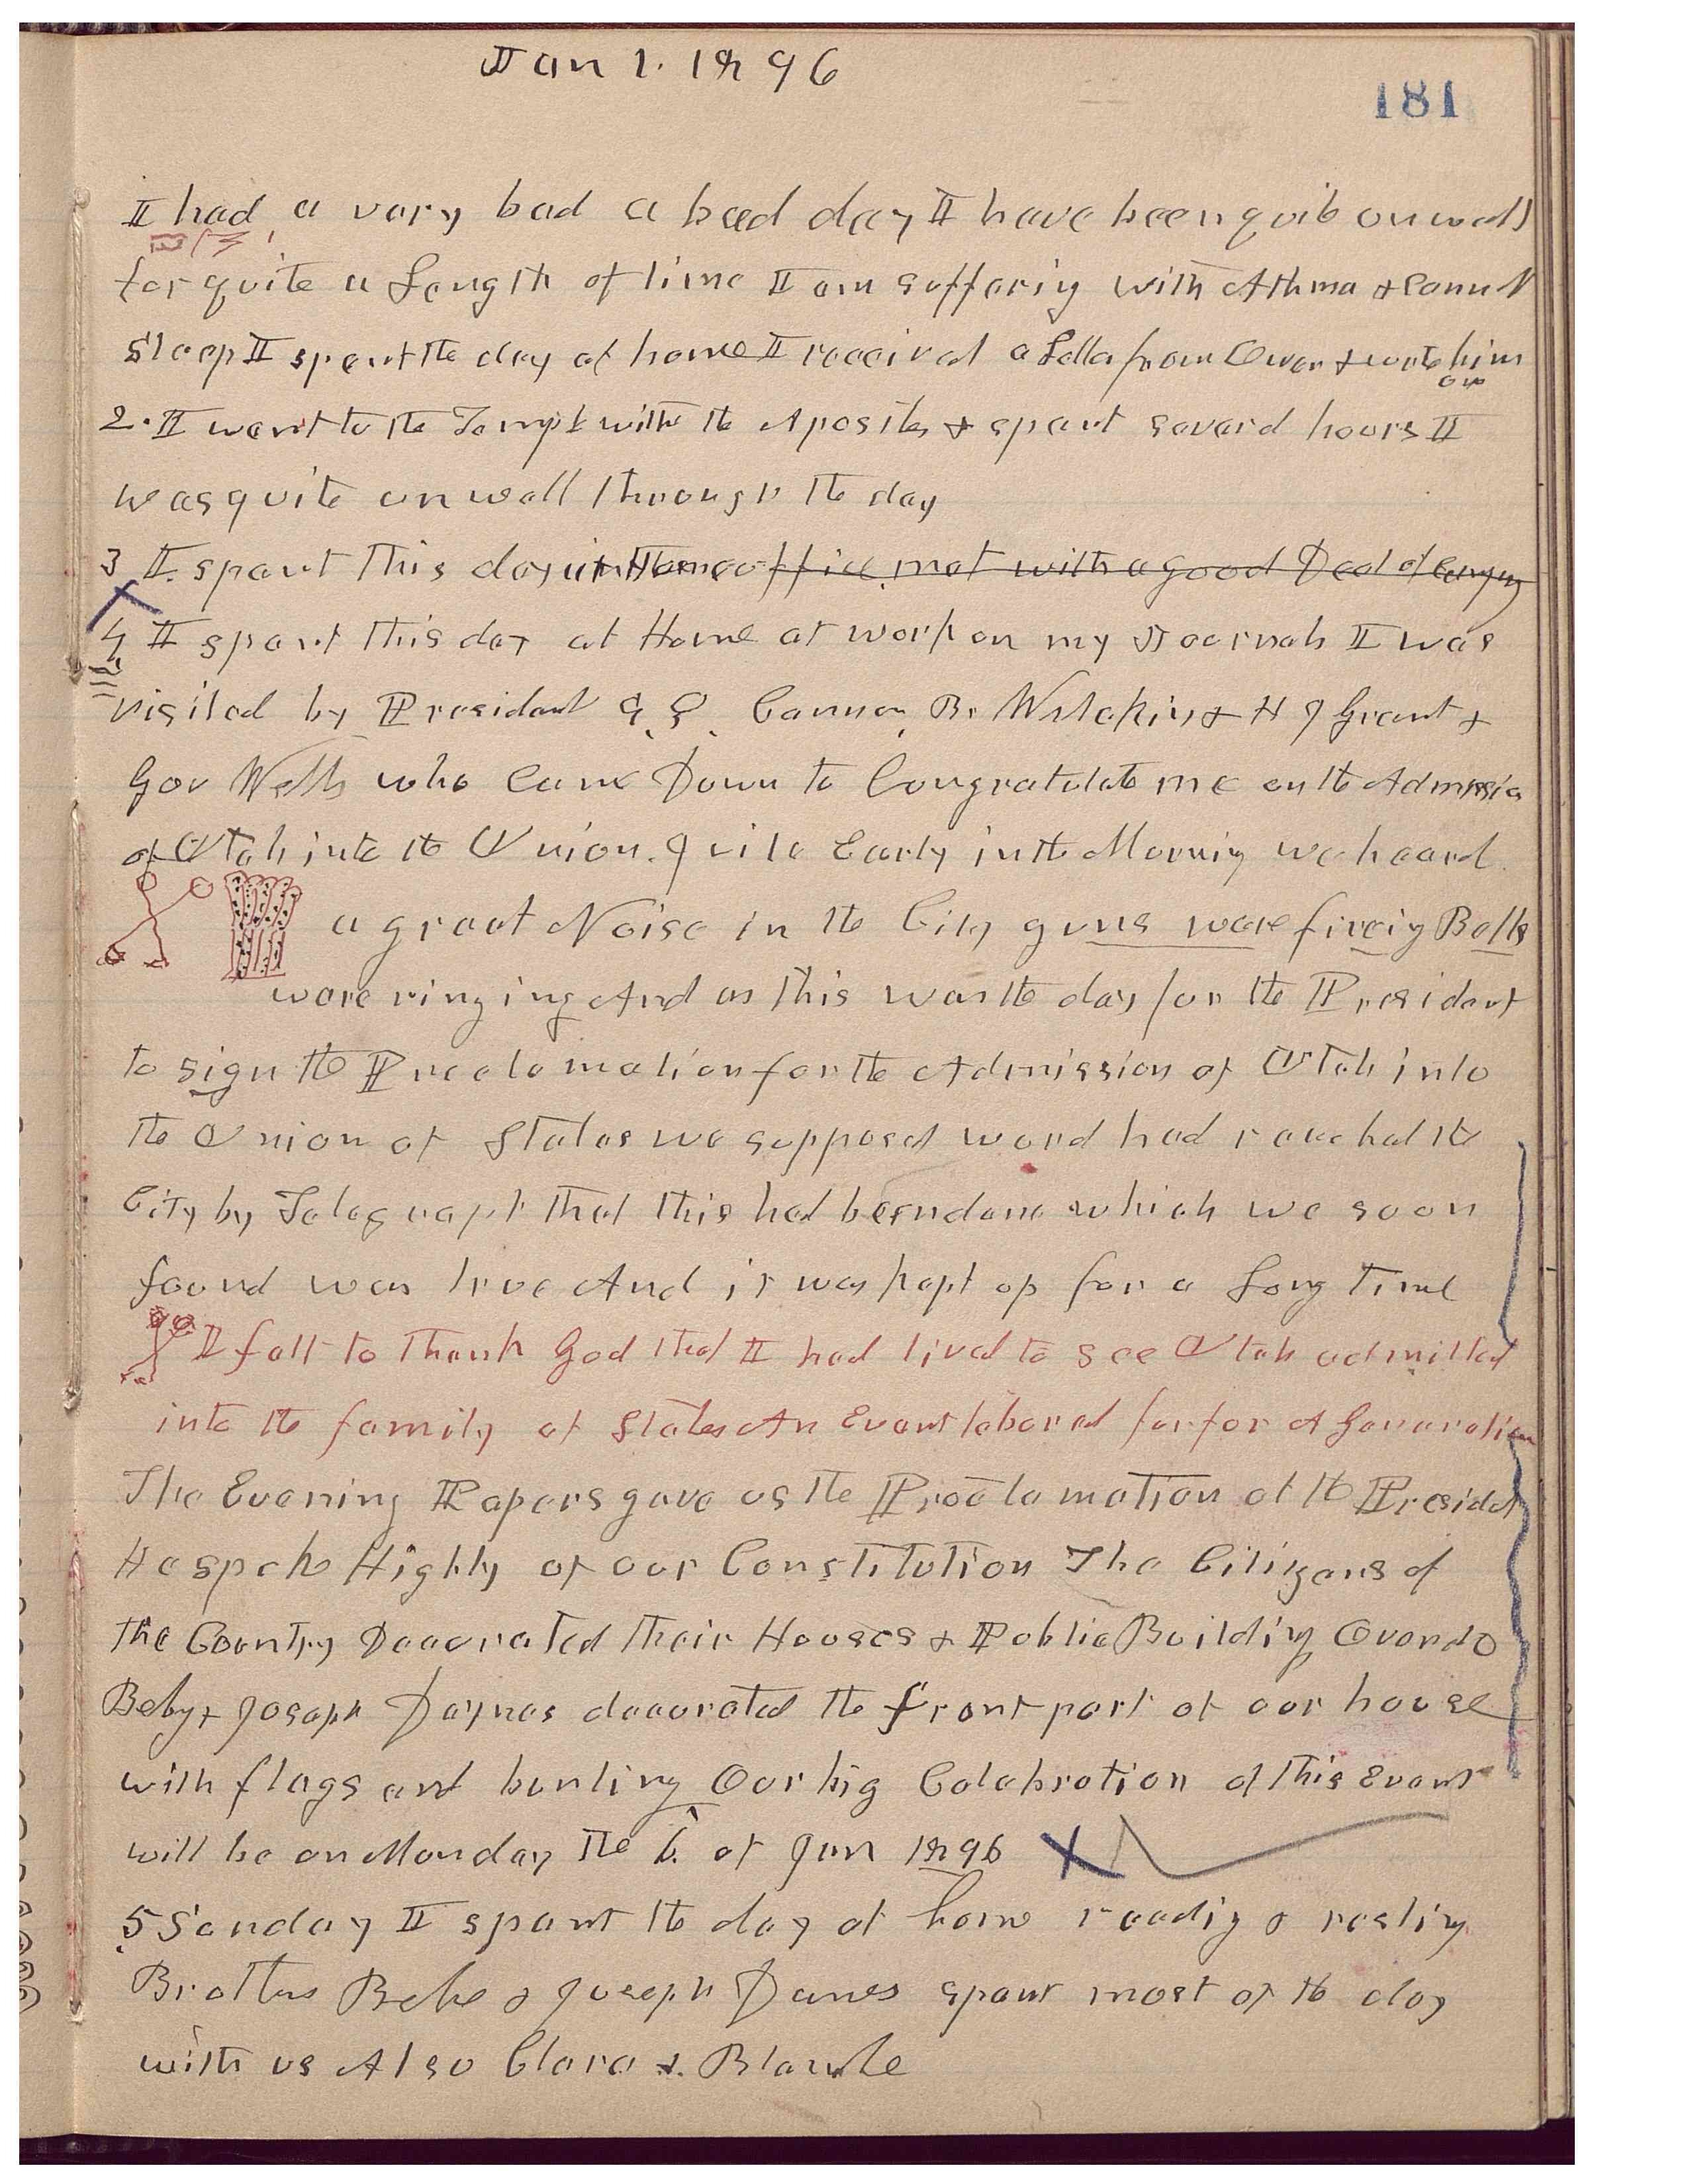 Jan 1. 1896
181
I had a very bad a bad day I have been quite unwell
for quite a Length of time I am suffering with Asthma & Cannot
Sleep I spent the day at home I received a Letter from Owen & wrote him
one
2. I went to the Temple with the Apostles & spent several hours I
was quite unwell through the day
3 I spent this day in the office met with a good Deal of Company
4 I spent this day at Home at work on my Journals I was
visited by President G. Q. Cannon Br Watchins & H J Grant &
Gov Wells who Came Down to Congratulate me on the Admission
of Utah into the Union. Quite Early in the Morning we heard
a great Noise in the City guns were fireing Bells
were ringing And as this was the day for the President
to sign the Proclamation for the Admission of Utah into
the Union of States we supposed word had reached the
City by Telegraph that this had been done which we soon
found was true And it was kept up for a Long Time
I felt to thank God that I had lived to see Utah admitted
into the family of States An Event labored for for A Generation
The Evening Papers gave us the Proclamation of the President
He spoke Highly of our Constitution The Citizens of
The Country Decorated their Houses & Public Building Ovando
Beby & Joseph Daynes decorated the front part of our house
with flags and bunting Our big Celebration of this Event
will be on Monday the 6. of Jan 1896
5 Sunday I spent the day at home reading & resting
Brothers Bebe & Joseph Danes spent most of the day
with us Also Clara & Blanche